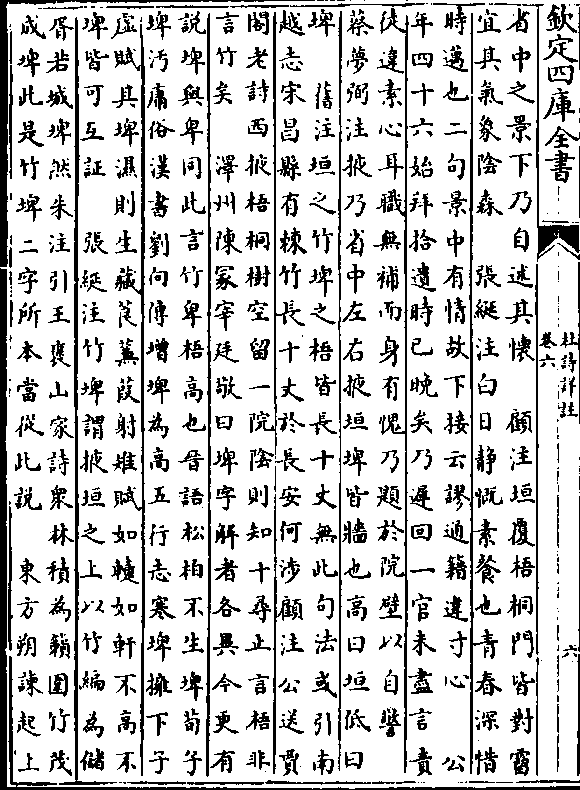 欽定四庫全書
杜詩詳註
卷六
六
省中之景下乃自述其懷　顧注垣覆梧桐門皆對霤
宜其氣象陰森　張綖注白日静慨素餐也青春深惜
時邁也二句景中有情故下接云謬通籍違寸心　公
年四十六始拜拾遺時已晚矣乃遲回一官未盡言責
徒違素心耳職無補而身有愧乃題於院壁以自警
蔡夢弼注掖乃省中左右掖垣埤皆牆也高曰垣低曰
埤　舊注垣之竹埤之梧皆長十丈無此句法或引南
越志宋昌縣有棘竹長十丈於長安何涉顧注公送賈
閣老詩西掖梧桐樹空留一院陰則知十尋止言梧非
言竹矣　澤州陳冡宰廷敬曰埤字解者各異今更有
説埤與卑同此言竹卑梧高也晉語松柏不生埤荀子
埤汚庸俗漢書劉向傳增埤為高五行志寒埤擁下子
虛賦其埤濕則生藏莨蒹葭射雉賦如轋如軒不高不
埤皆可互証　張綖注竹埤謂掖垣之上以竹編為儲
胥若城埤然朱注引王褒山家詩衆林積為籟圍竹茂
成埤此是竹埤二字所本當從此説　東方朔諫起上